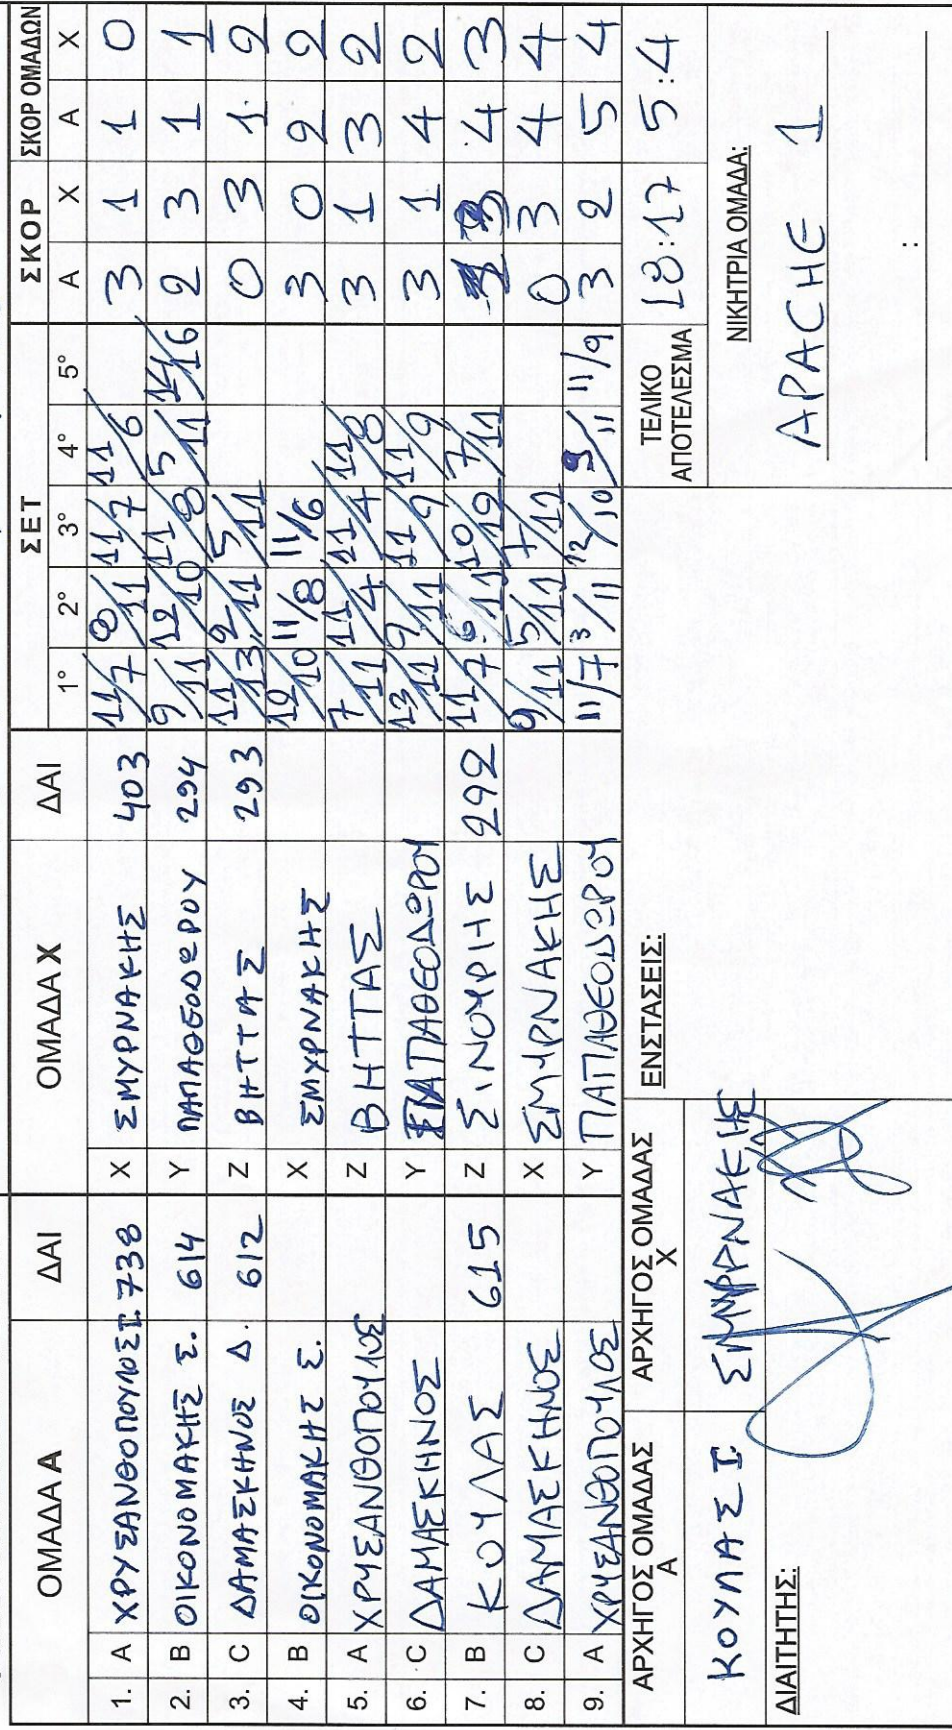 ΟΜΑΔΑ Α ΔΑΙ ΟΜΑΔΑ Χ ΔΑΙ ΣΕΤ ΣΚΟΡ ΣΚΟΡ ΟΜΑΔΩΝ
1° 2° 3° 4° 5° Α Χ Α Χ
1. A ΧΡΥΣΑΝΘΟΠΟΥΛΟΣ Ι. 738 X ΣΜΥΡΝΑΚΗΣ 403 11/7 8/11 11/7 11/6 3 1 1 0
2. B ΟΙΚΟΝΟΜΑΚΗΣ Σ. 614 Y ΠΑΠΑΘΕΟΔΩΡΟΥ 294 9/11 12/10 11/8 5/11 14/16 2 3 1 1
3. C ΔΑΜΑΣΚΗΝΟΣ Δ. 612 Z ΒΗΤΤΑΣ 293 11/13 9/11 5/11 0 3 1 2
4. B ΟΙΚΟΝΟΜΑΚΗΣ Σ. X ΣΜΥΡΝΑΚΗΣ 12/10 11/8 11/6 3 0 2 2
5. A ΧΡΥΣΑΝΘΟΠΟΥΛΟΣ Z ΒΗΤΤΑΣ 7/11 11/4 11/4 11/8 3 1 3 2
6. C ΔΑΜΑΣΚΗΝΟΣ Y ΠΑΠΑΘΕΟΔΩΡΟΥ 13/11 9/11 11/9 11/9 3 1 4 2
7. B ΚΟΥΛΑΣ 615 Z ΣΙΝΟΥΡΗΣ 292 11/7 6/11 10/12 7/11 3 4 3
8. C ΔΑΜΑΣΚΗΝΟΣ X ΣΜΥΡΝΑΚΗΣ 9/11 5/11 7/11 0 3 4 4
9. A ΧΡΥΣΑΝΘΟΠΟΥΛΟΣ Y ΠΑΠΑΘΕΟΔΩΡΟΥ 11/7 3/11 12/10 9/11 11/9 3 2 5 4
ΑΡΧΗΓΟΣ ΟΜΑΔΑΣ Α
ΑΡΧΗΓΟΣ ΟΜΑΔΑΣ Χ
ΕΝΣΤΑΣΕΙΣ:
ΤΕΛΙΚΟ ΑΠΟΤΕΛΕΣΜΑ 18:17 5:4
ΚΟΥΛΑΣ Ι. ΣΜΥΡΝΑΚΗΣ
ΔΙΑΙΤΗΤΗΣ:
ΝΙΚΗΤΡΙΑ ΟΜΑΔΑ:
APACHE 1
: